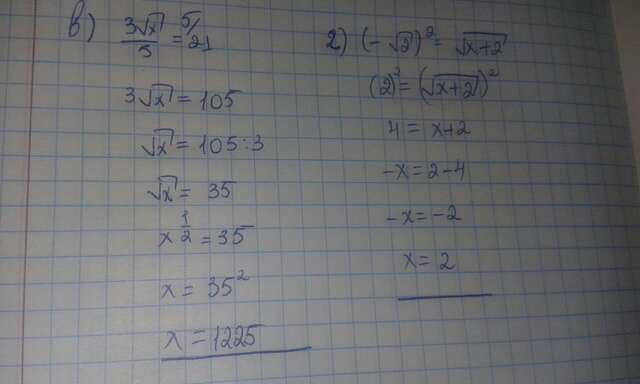 в) 3√x/5 = 5/21
3√x = 105
√x = 105:3
√x = 35
x^(1/2) = 35
x = 35²
x = 1225
2) (-√2)² = √x+2
(2)² = (√x+2)²
4 = x+2
-x = 2-4
-x = -2
x = 2